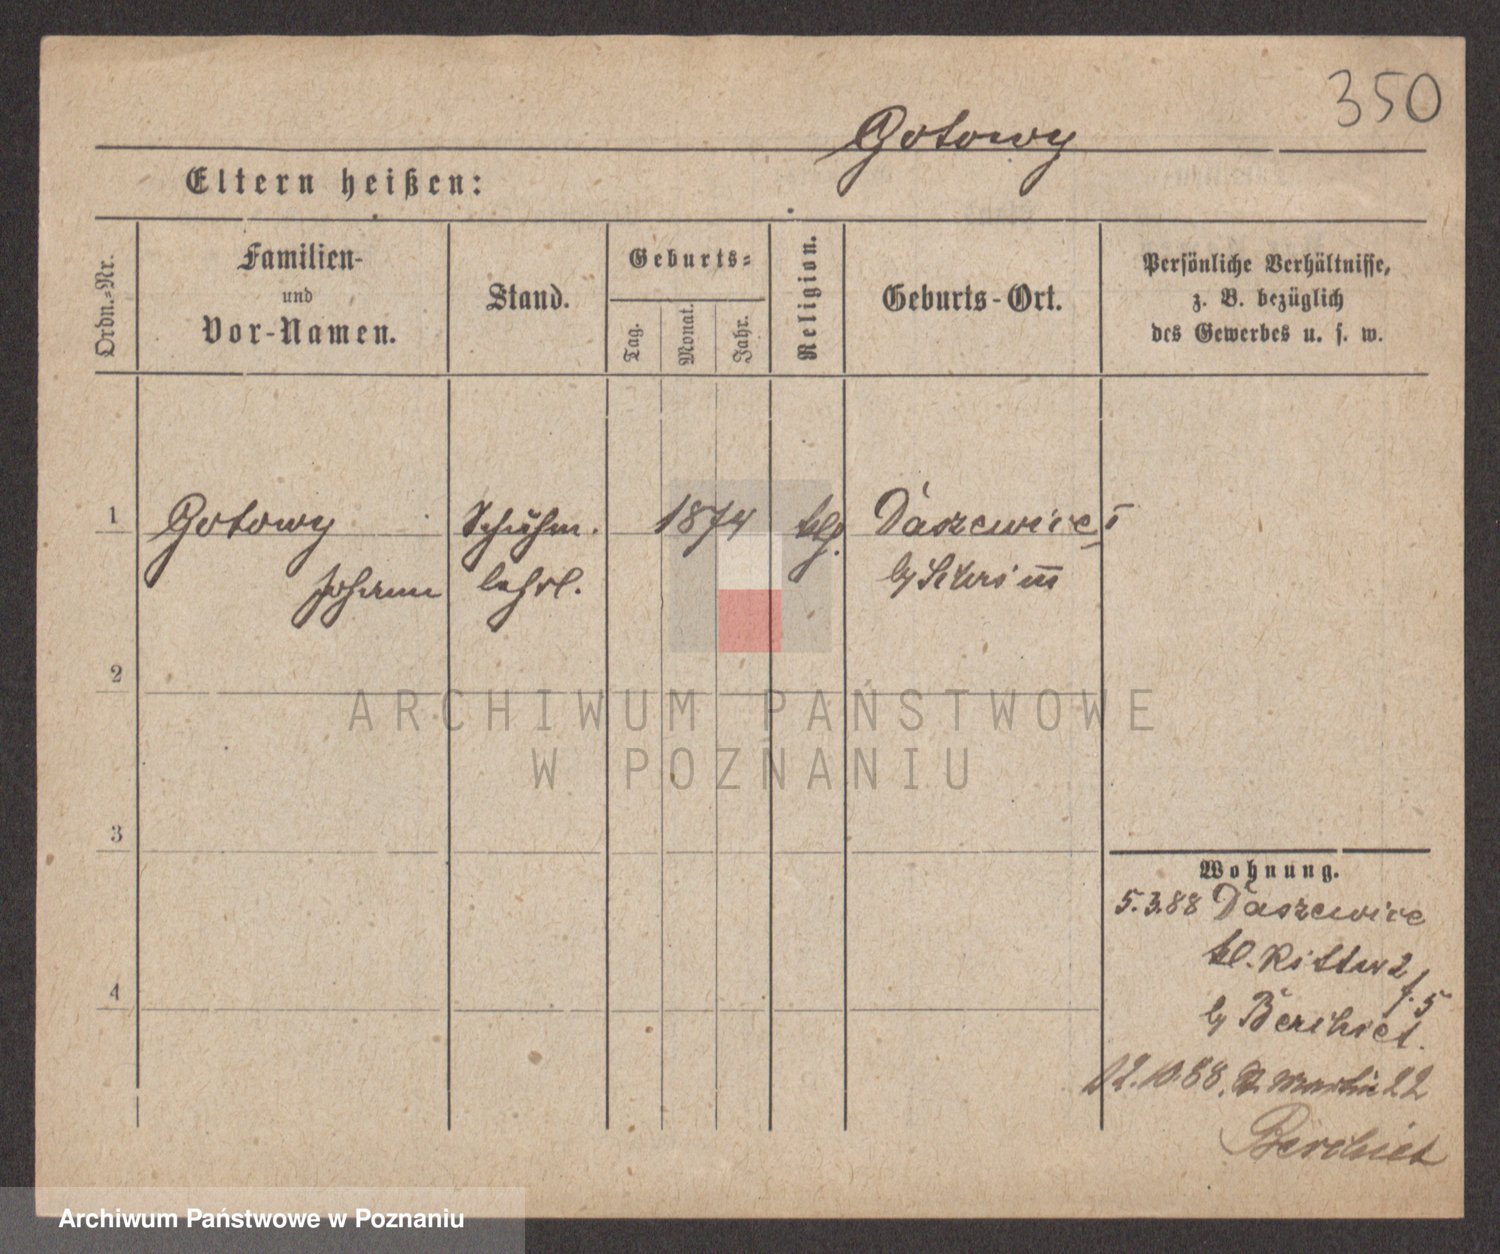 350
Gotowy
Eltern heißen:
Ordn.-Nr.
Familien-
und
Vor-Namen.
Stand.
Geburts-
Tag.
Monat.
Jahr.
Religion.
Geburts-Ort.
Persönliche Verhältnisse,
z. B. bezüglich
des Gewerbes u. s. w.
1
Gotowy
Johann
Schuhm.
lehrl.
1874
Daszewice
2
3
4
Wohnung.
5.3.88 Daszewice
kl. Ritter 2
12.10.88. St. Martin 22
ARCHIWUM PAŃSTWOWE
W POZNANIU
Archiwum Państwowe w Poznaniu